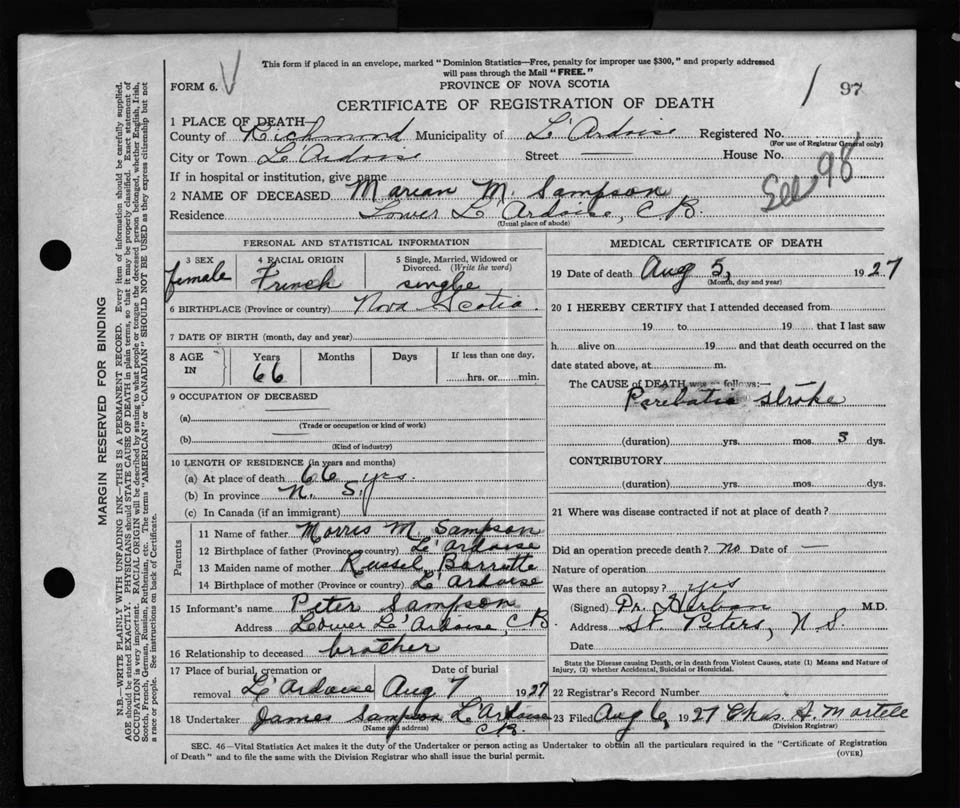 This form if placed in an envelope, marked "Dominion Statistics—Free, penalty for improper use $300," and properly addressed
will pass through the Mail "FREE."
FORM 6. V
PROVINCE OF NOVA SCOTIA
CERTIFICATE OF REGISTRATION OF DEATH
97
1 PLACE OF DEATH
County of Richmond Municipality of L'Ardoise Registered No.
(For use of Registrar General only)
City or Town L'Ardoise Street — House No.
If in hospital or institution, give name
See 98
2 NAME OF DECEASED Marian M. Sampson
Residence Lower L'Ardoise, C.B.
(Usual place of abode)
PERSONAL AND STATISTICAL INFORMATION
3 SEX 4 RACIAL ORIGIN 5 Single, Married, Widowed or Divorced. (Write the word)
female French single
6 BIRTHPLACE (Province or country) Nova Scotia
7 DATE OF BIRTH (month, day and year)
8 AGE IN Years Months Days If less than one day,
66 hrs. or min.
9 OCCUPATION OF DECEASED
(a)
(Trade or occupation or kind of work)
(b)
(Kind of industry)
10 LENGTH OF RESIDENCE (in years and months)
(a) At place of death 66 yrs.
(b) In province N. S.
(c) In Canada (if an immigrant)
Parents
11 Name of father Morris M Sampson
12 Birthplace of father (Province or country) L'ardoise
13 Maiden name of mother Russel Barrette
14 Birthplace of mother (Province or country) L'ardoise
15 Informant's name Peter Sampson
Address Lower L'Ardoise, C.B
16 Relationship to deceased brother
17 Place of burial, cremation or Date of burial
removal L'Ardoise Aug 7 1927
18 Undertaker James Sampson L'Ardoise
(Name and address) C.B.
MEDICAL CERTIFICATE OF DEATH
19 Date of death Aug 5, 1927
(Month, day and year)
20 I HEREBY CERTIFY that I attended deceased from
19 to 19 that I last saw
h alive on 19 and that death occurred on the
date stated above, at m.
The CAUSE of DEATH was as follows:—
stroke
(duration) yrs. mos. 3 dys.
CONTRIBUTORY
(duration) yrs. mos. dys.
21 Where was disease contracted if not at place of death?
Did an operation precede death? no Date of —
Nature of operation
Was there an autopsy? yes
(Signed) Dr. M.D.
Address St. Peters, N.S.
Date
State the Disease causing Death, or in death from Violent Causes, state (1) Means and Nature of
Injury, (2) whether Accidental, Suicidal or Homicidal.
22 Registrar's Record Number
23 Filed Aug 6, 1927 Chas. S. Martell
(Division Registrar)
SEC. 46—Vital Statistics Act makes it the duty of the Undertaker or person acting as Undertaker to obtain all the particulars required in the "Certificate of Registration
of Death" and to file the same with the Division Registrar who shall issue the burial permit.
(OVER)
MARGIN RESERVED FOR BINDING
N.B.—WRITE PLAINLY WITH UNFADING INK—THIS IS A PERMANENT RECORD. Every item of information should be carefully supplied.
AGE should be stated EXACTLY. PHYSICIANS should STATE CAUSE OF DEATH in plain terms, so that it may be properly classified. Exact statement of
OCCUPATION is very important. RACIAL ORIGIN will be described by stating to what people or tongue the deceased person belonged, whether English, Irish,
Scotch, French, German, Russian, Ruthenian, etc. The terms "AMERICAN" or "CANADIAN" SHOULD NOT BE USED as they express citizenship but not
a race or people. See instructions on back of Certificate.